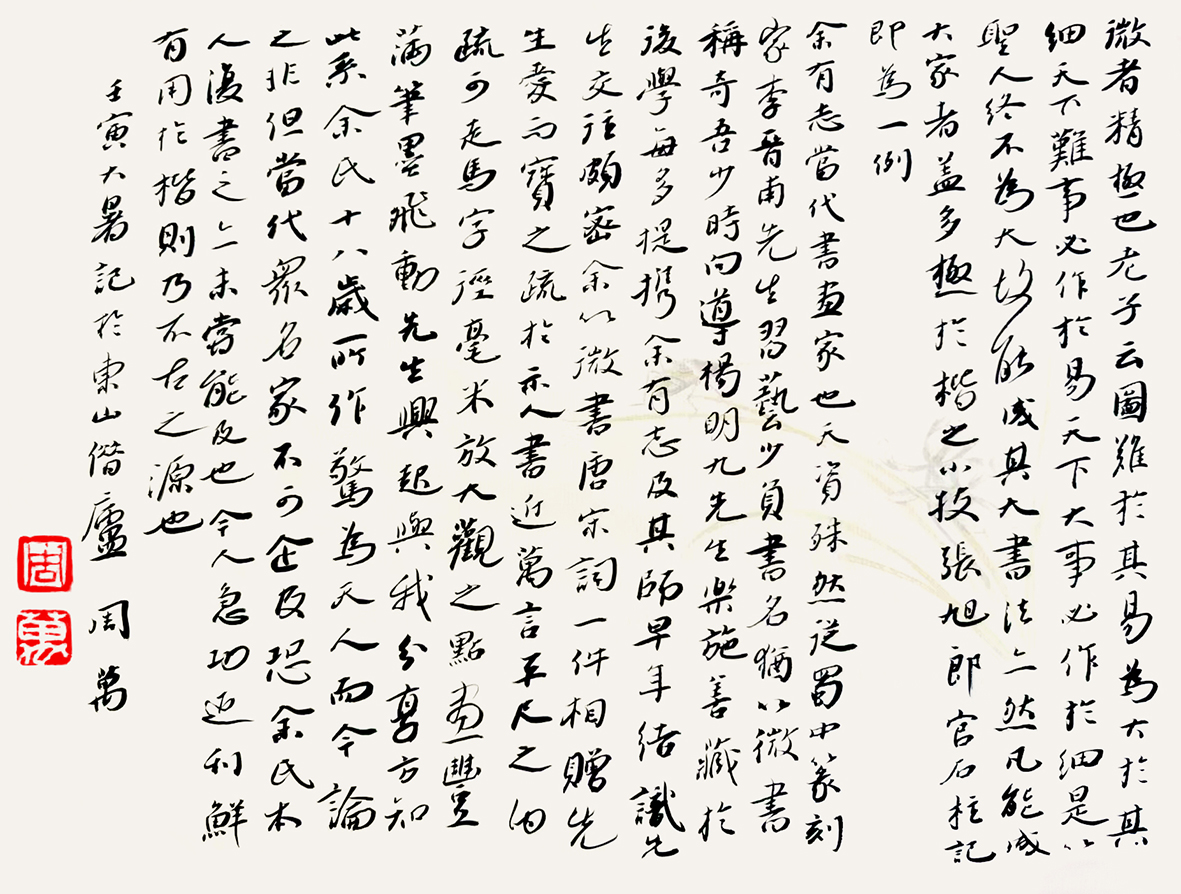 微者精極也老子云圖難於其易為大於其
細天下難事必作於易天下大事必作於細是以
聖人終不為大故能成其大書法亦然凡能成
大家者蓋多極於楷之小技張旭郎官石柱記
即為一例
余有志當代書畫家也天資殊然從蜀中篆刻
家李晉甫先生習藝少負書名猶以微書
稱奇吾少時向導楊明九先生樂施善藏於
後學每多提携余有志及其師早年結識先
生交往頗密余以微書唐宋詞一件相贈先
生愛而寶之疏於示人書近萬言平尺之內
疏可走馬字徑毫米放大觀之點畫豐
滿筆墨飛動先生興起與我分享方知
此系余氏十八歲所作驚為天人而今論
之非但當代眾名家不可企及恐余氏本
人復書之亦未嘗能及也今人急功近利鮮
有用於楷則乃不古之源也
壬寅大暑記於東山僭廬 周萬
周
萬